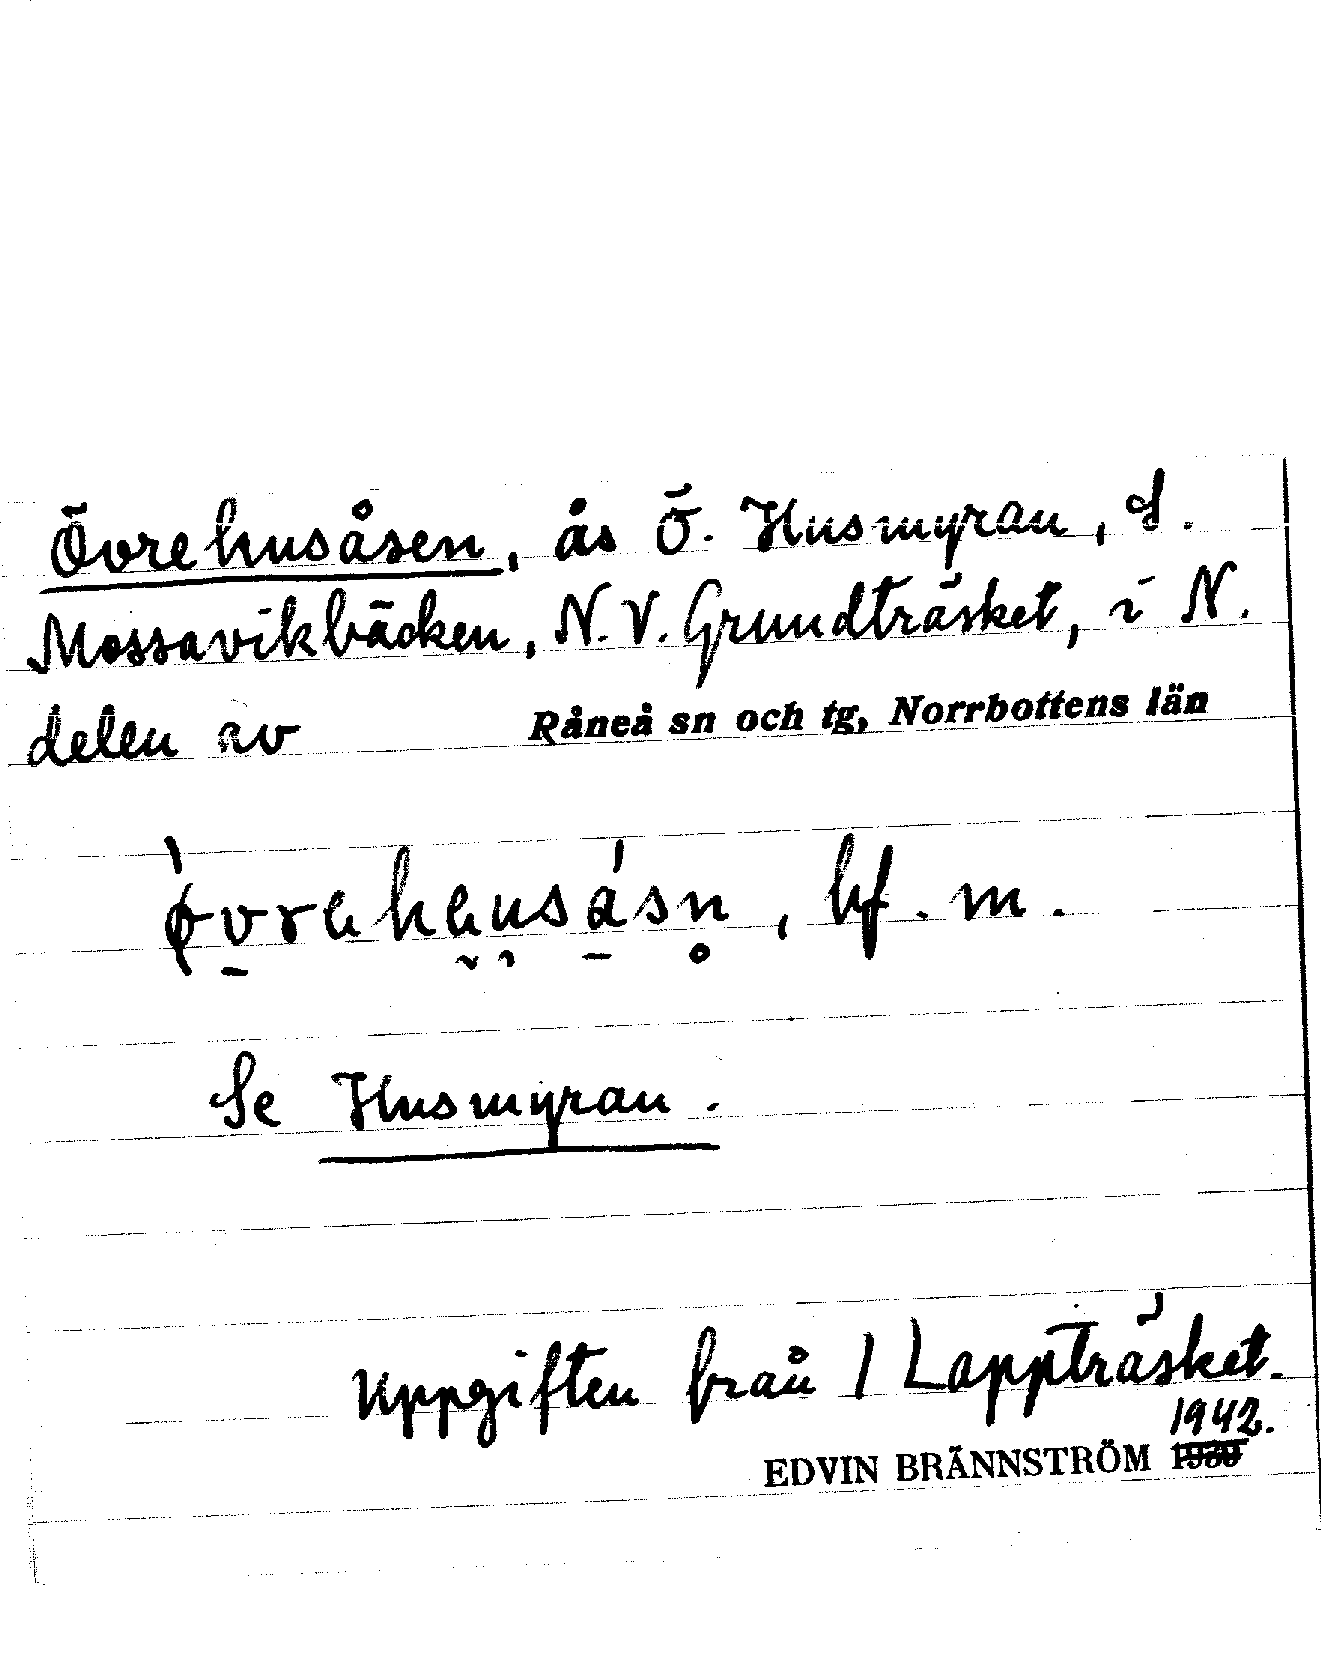 Övrehusåsen, ås Ö. Husmyran, S.
Mossavikbäcken, N.V. Grundträsket, i N.
delen av Råneå sn och tg, Norrbottens län
hf. m.
Se Husmyran.
Uppgiften från 1 Lappträsket.
1942.
EDVIN BRÄNNSTRÖM 1930